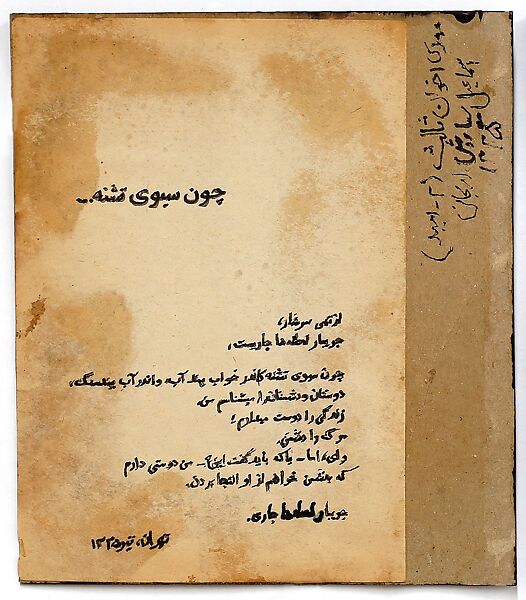 چون سبوی تشنه...
از تهی سرشار،
جویبار لحظه‌ها جاریست.
چون سبوی تشنه کاندر خواب بیند آب، و اندر آب بیند سنگ،
دوستان و دشمنان را میشناسم من.
زندگی را دوست میدارم؛
مرگ را دشمن.
وای، اما - با که باید گفت این؟ - من دوستی دارم
که به دشمن خواهم از او التجا بردن.
جویبار لحظه‌ها جاری.
تهران، تیرماه ۱۳۳۵
مهدی اخوان ثالث (م - امید)
اسماعیل
۱۳۳۵